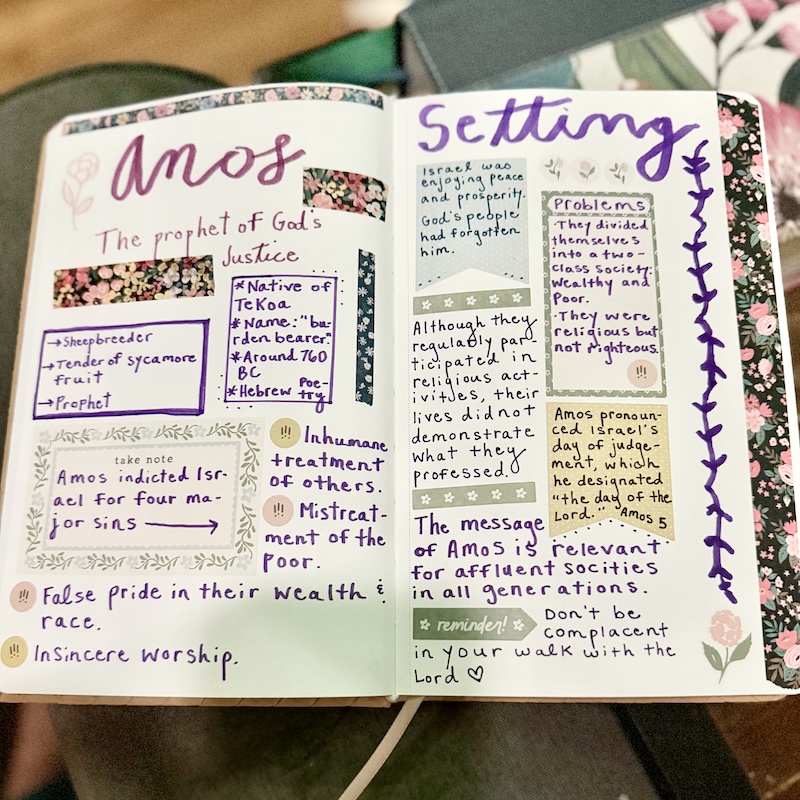 Amos
The prophet of God's
Justice
→Sheepbreeder
→Tender of sycamore
fruit
→Prophet
*Native of
TeKoa
*Name: "bu-
rden bearer"
*Around 760
BC
*Hebrew Poe-
try
take note
Amos indicted Isr-
ael for four ma-
jor sins →
!!! Inhumane
treatment
of others.
!!! Mistreat-
ment of the
poor.
!!! False pride in their wealth &
race.
!!! Insincere worship.
Setting
Israel was
enjoying peace
and prosperity.
God's people
had forgotten
him.
Although they
regularly par-
ticipated in
religious act-
ivities, their
lives did not
demonstrate
what they
professed.
Problems
·They divided
themselves
into a two-
class society:
Wealthy and
Poor.
·They were
religious but
not righteous.
!!!
Amos pronoun-
ced Israel's
day of judge-
ment, which
he designated
"the day of the
Lord." Amos 5
The message
of Amos is relevant
for affluent socities
in all generations.
reminder! Don't be
complacent
in your walk with the
Lord ♡